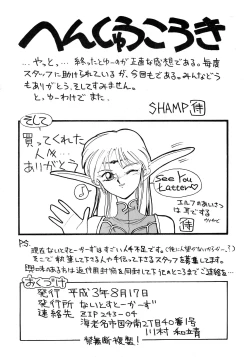 へんしゅうこうき
…やっと。… 終ったとゆーのが正直な感想である。毎度
スタッフに助けられているが、今回もである。みんなどうも
ありがとう、そしてすみません。
と、ゆーわけで また.
SHAMP
そして
買ってくれた
人々…
ありがとう
See You
Latter♡
エルフのあいさつ
は耳でする
P.S.
現在ないとすとーかーずはすごい人手不足です。
そこで執筆して下さる人や手伝って下さるスタッフを募集してます。
興味のある方は返信用封筒を同封して下記のところまでご連絡を…
おくづけ
発行 平成3年8月17日
発行所 ないとすとーかーず
連絡先 ZIP 243-04
海老名市国分南2丁目40番1号
川村 和靖
禁無断複製!